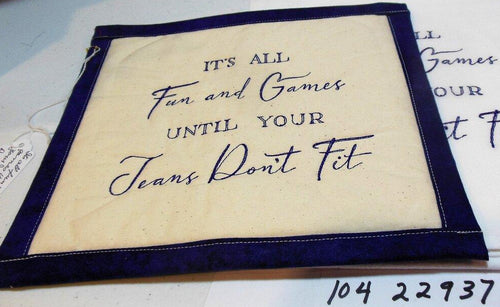 IT'S ALL
Fun and Games
UNTIL YOUR
Jeans Don't Fit
LL
Games
UR
t F
104 22937